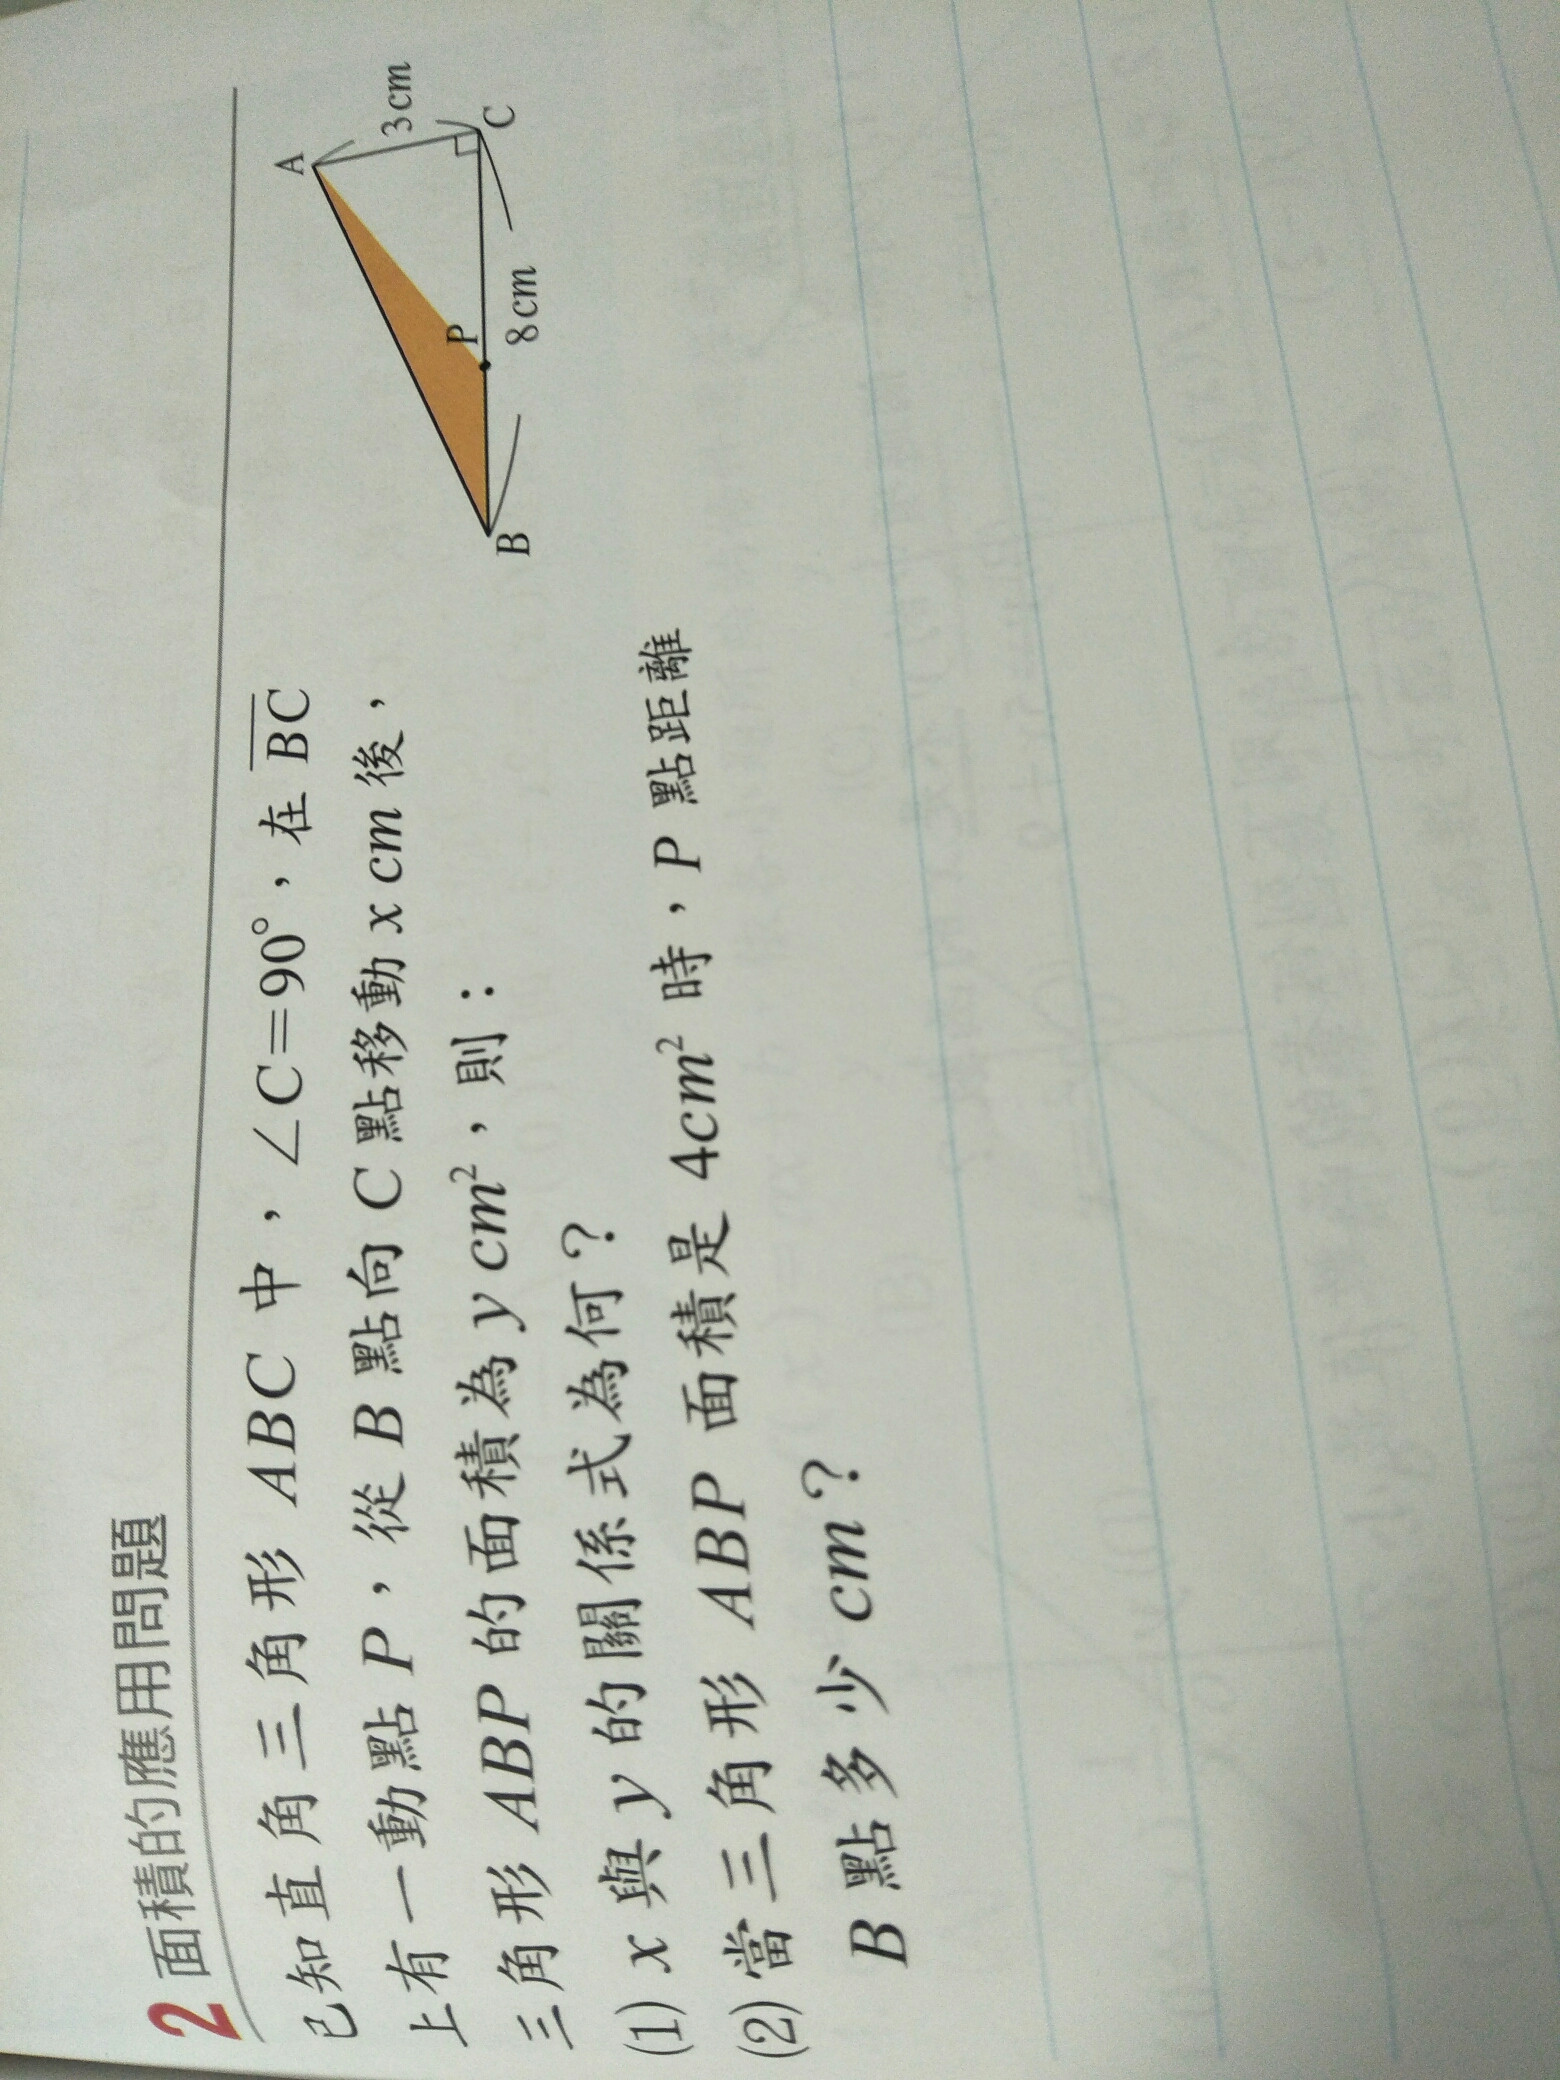 2 面積的應用問題
已知直角三角形 ABC 中，∠C=90°，在 BC
上有一動點 P，從 B 點向 C 點移動 x cm 後，
三角形 ABP 的面積為 y cm²，則：
(1) x 與 y 的關係式為何？
(2) 當三角形 ABP 面積是 4cm² 時，P 點距離
B 點多少 cm？
A
3cm
P
B
C
8cm